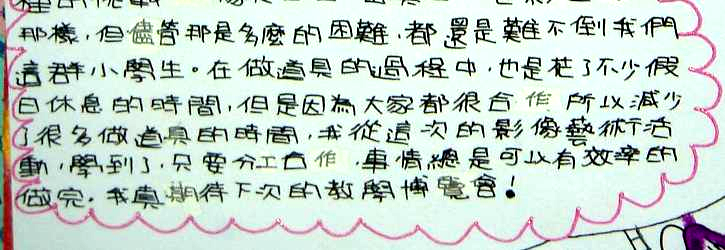 那樣，但儘管那是多麼的困難，都還是難不倒我們
這群小學生。在做道具的過程中，也是花了不少假
日休息的時間，但是因為大家都很合作所以減少
了很多做道具的時間，我從這次的影像藝術行活
動，學到了，只要分工合作，事情總是可以有效率的
做完。我真期待下次的教學博覽會！